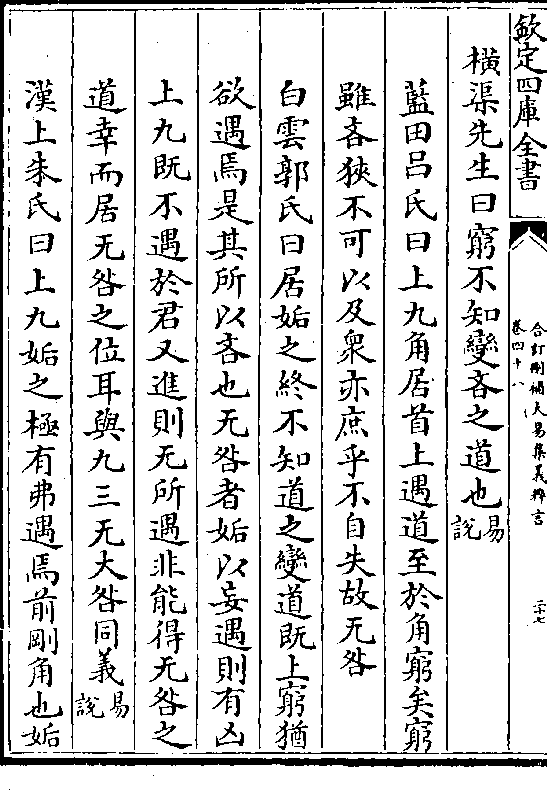 欽定四庫全書
合訂刪補大易集義粹言
卷四十八
二十七
橫渠先生曰窮不知變吝之道也易說
藍田呂氏曰上九角居首上遇道至於角窮矣窮
雖吝狹不可以及衆亦庶乎不自失故无咎
白雲郭氏曰居姤之終不知道之變道既上窮猶
欲遇焉是其所以吝也无咎者姤以妄遇則有凶
上九既不遇於君又進則无所遇非能得无咎之
道幸而居无咎之位耳與九三无大咎同義易說
漢上朱氏曰上九姤之極有弗遇焉前剛角也姤